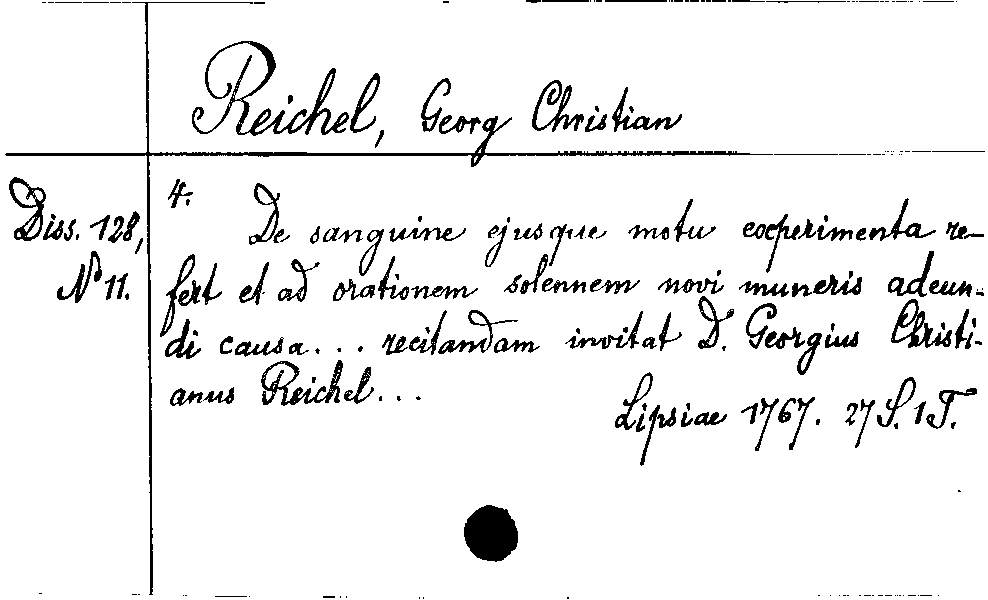 Reichel, Georg Christian
Diss. 128,
No 11.
4.
De sanguine ejusque motu experimenta re-
fert et ad orationem solennem novi muneris adeun-
di causa... recitandam invitat D. Georgius Christi-
anus Reichel...
Lipsiae 1767. 27 S. 1 T.